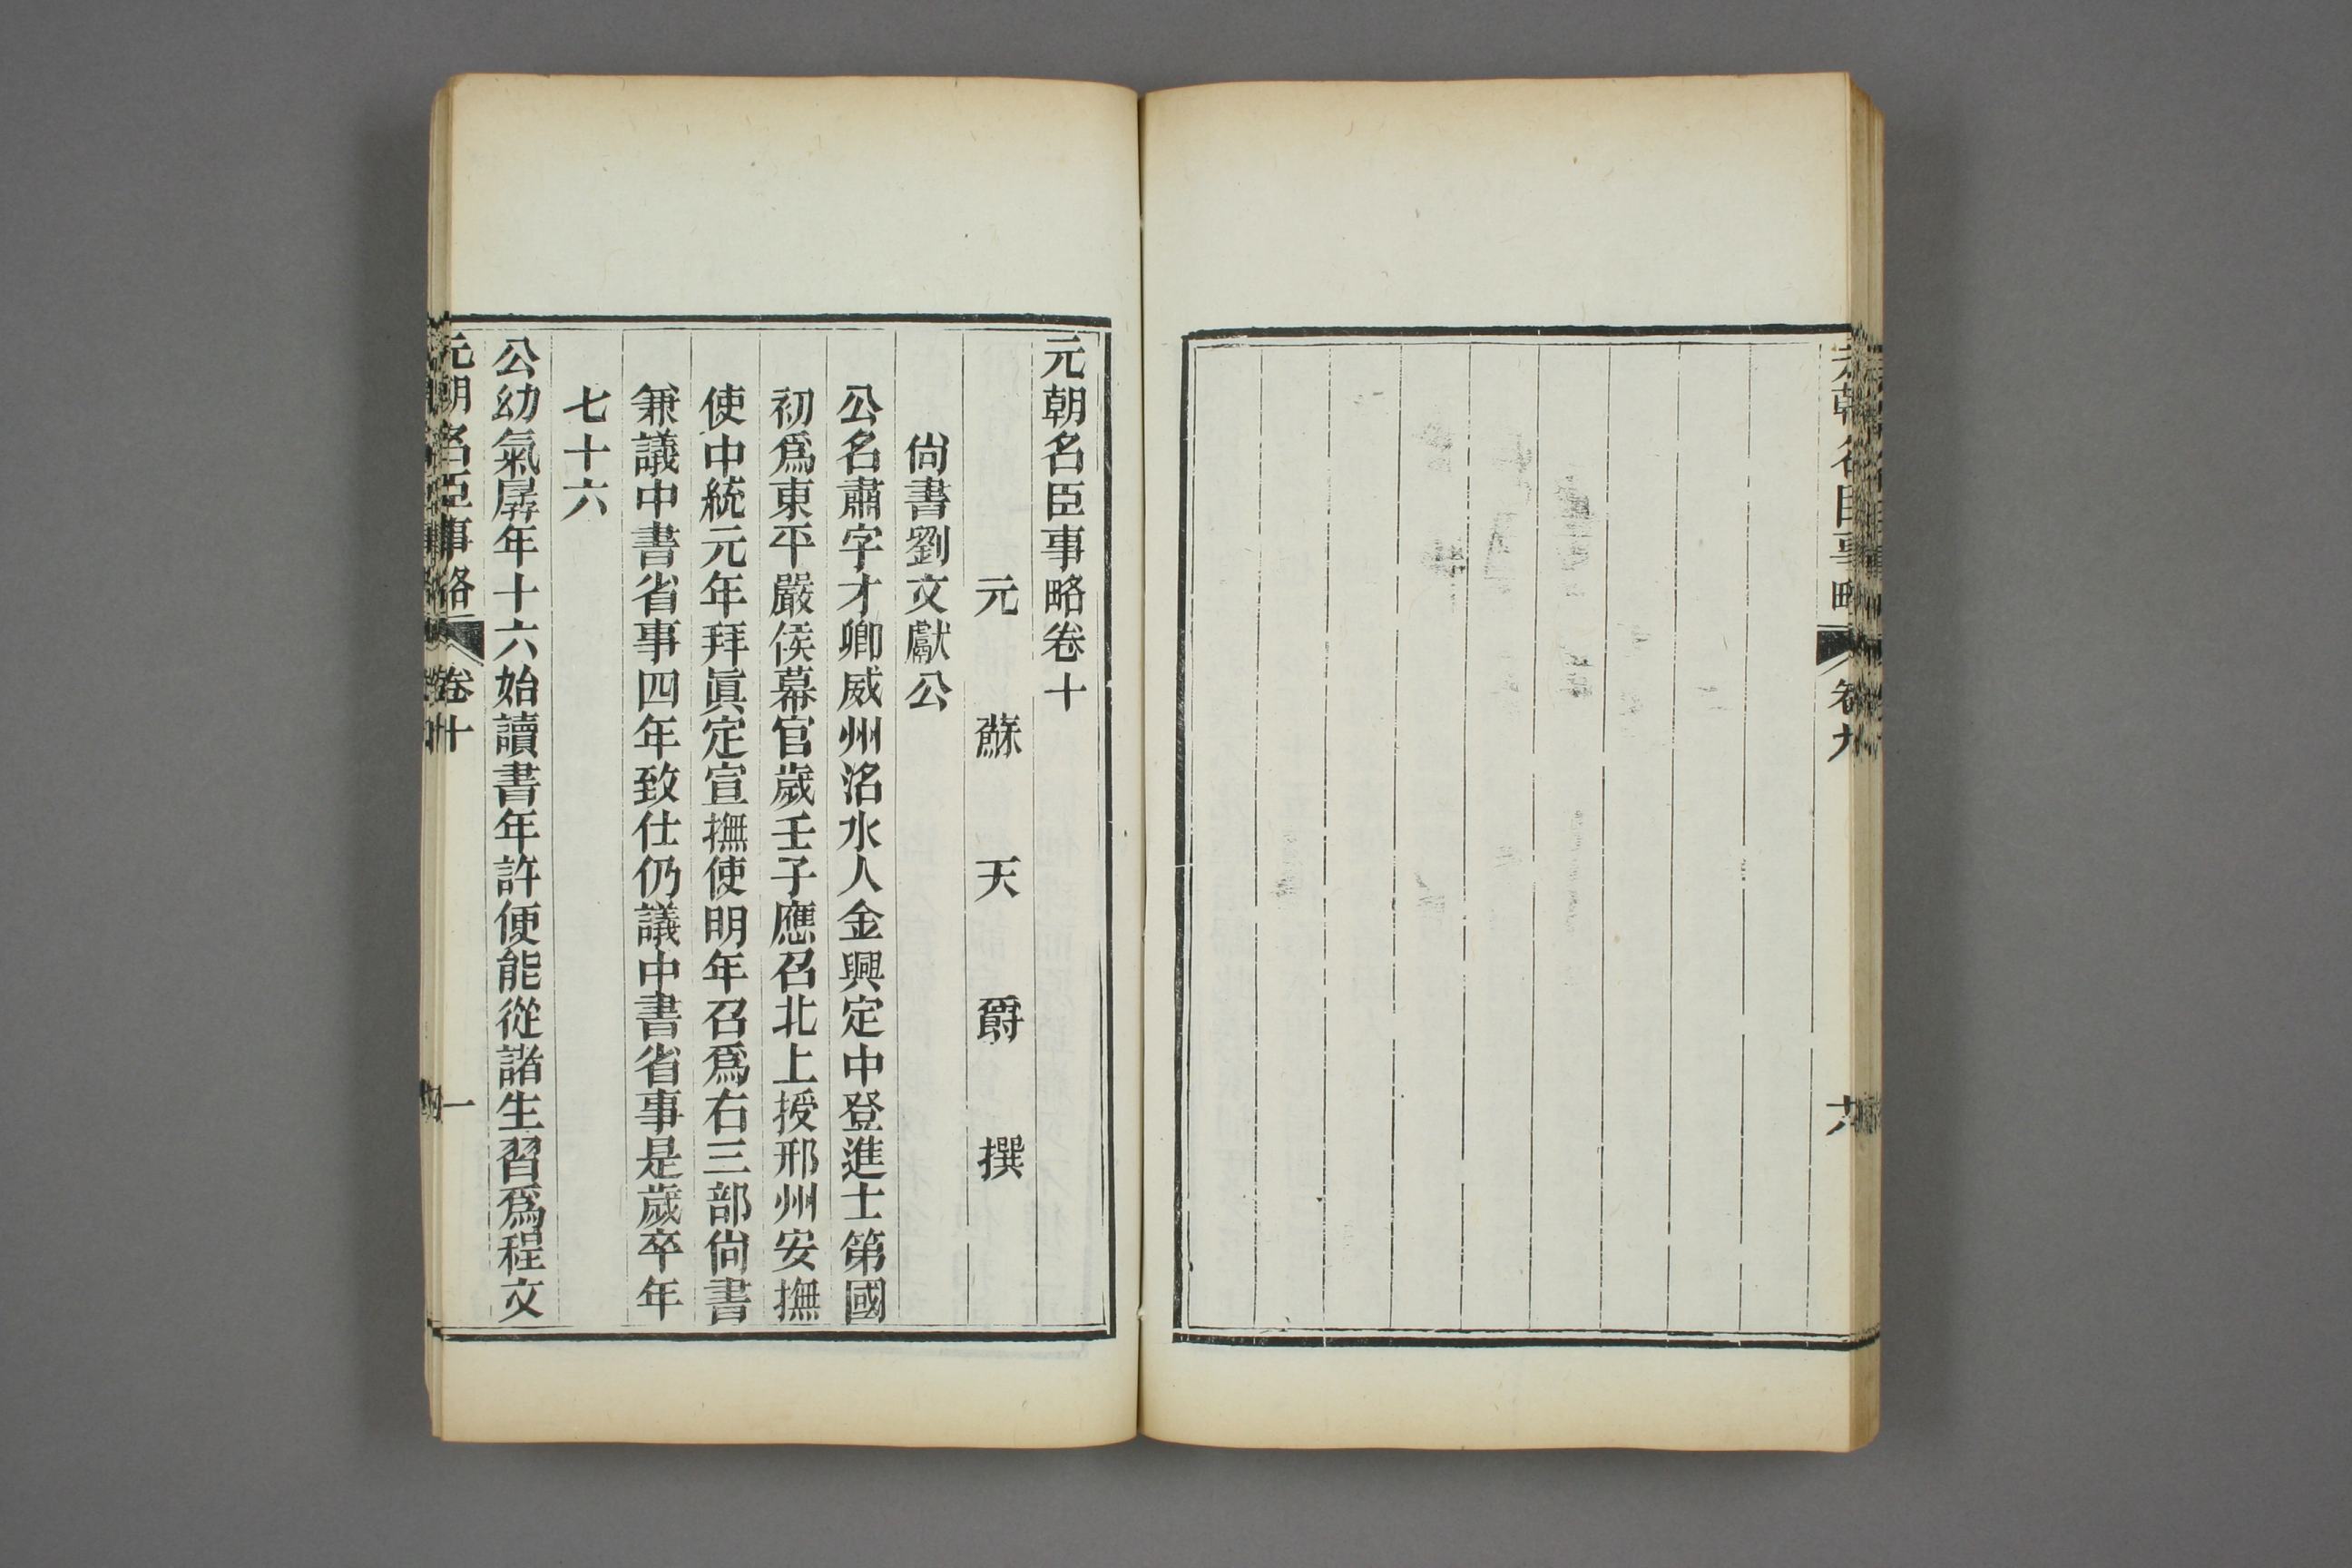 元朝名臣事略
卷九
元朝名臣事略卷十
元 蘇 天 爵 撰
尙書劉文獻公
公名肅字才卿威州洺水人金興定中登進士第國
初爲東平嚴侯幕官歲壬子應召北上授邢州安撫
使中統元年拜眞定宣撫使明年召爲右三部尙書
兼議中書省事四年致仕仍議中書省事是歲卒年
七十六
公幼氣孱年十六始讀書年許便能從諸生習爲程文
元朝名臣事略
卷十
一